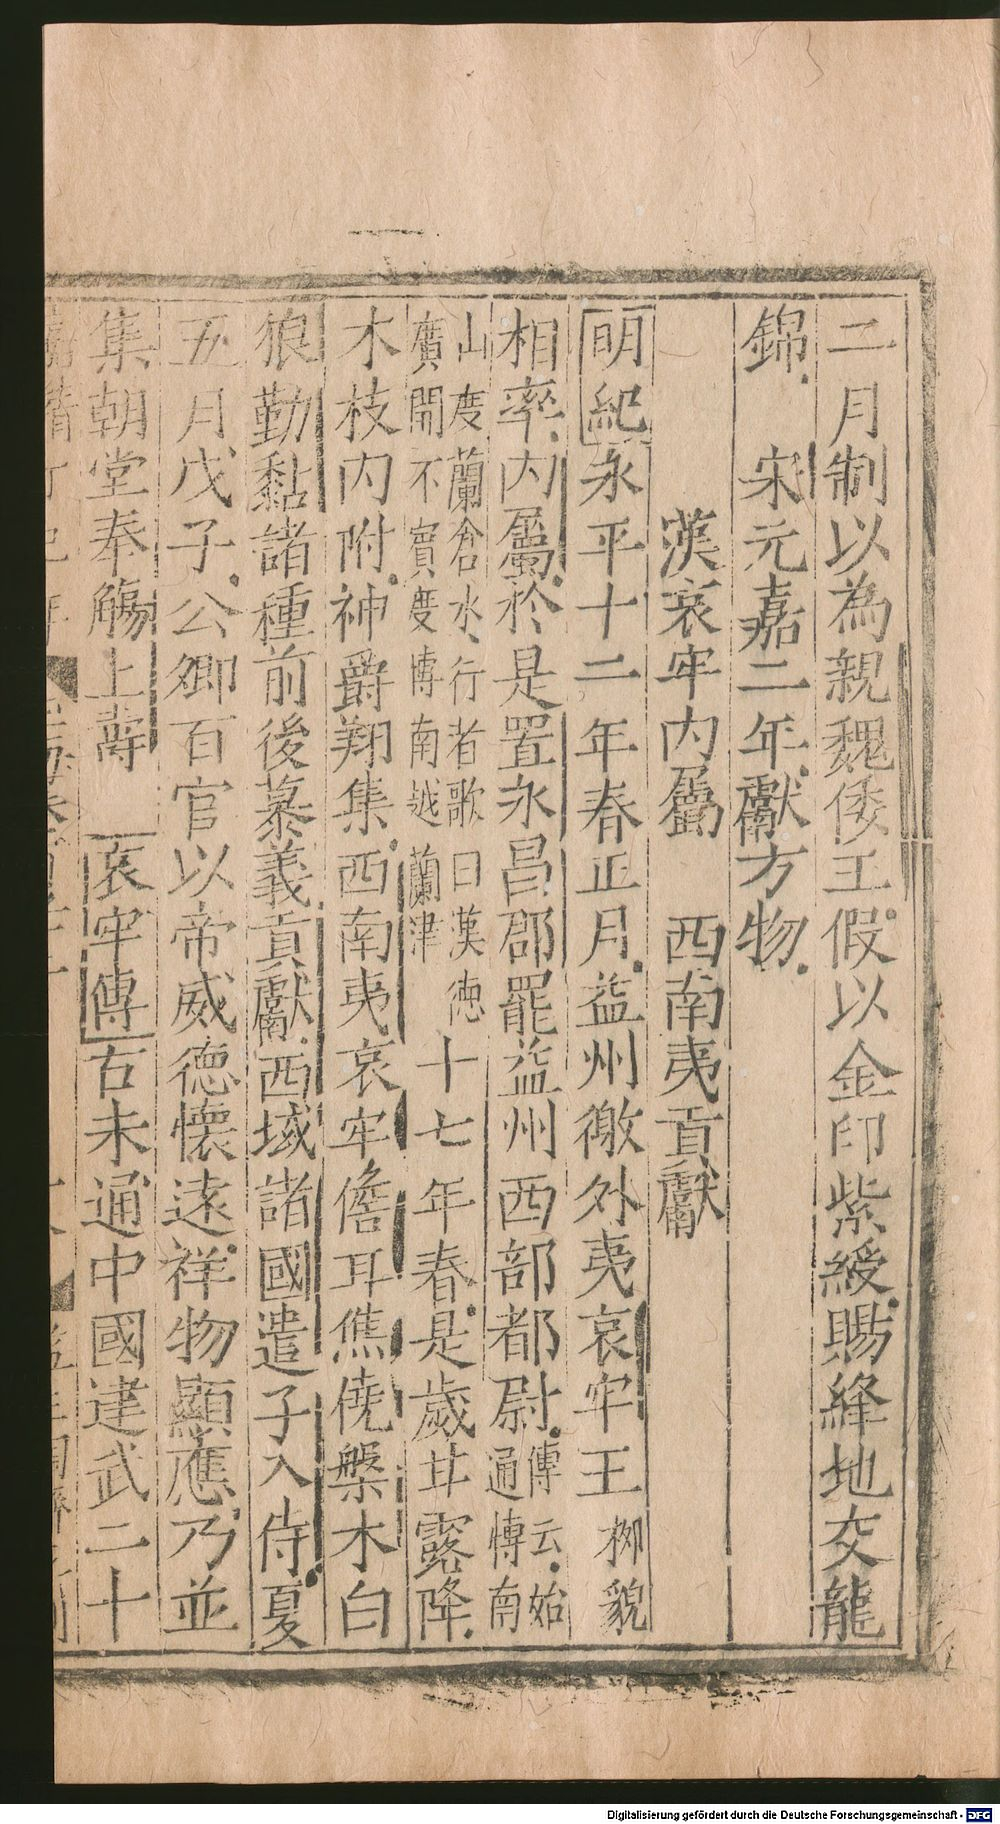 二月制以為親魏倭王假以金印紫綬賜絳地交龍
錦　宋元嘉二年獻方物
漢哀牢內屬　西南夷貢獻
明紀永平十二年春正月益州徼外夷哀牢王柳貌
相率內屬於是置永昌郡罷益州西部都尉傳云始通博南
山度蘭倉水行者歌曰漢德廣開不賓度博南越蘭津　十七年春是歲甘露降
木枝內附神爵翔集西南夷哀牢儋耳僬僥槃木白
狼勤黏諸種前後慕義貢獻西域諸國遣子入侍夏
五月戊子公卿百官以帝威德懷遠祥物顯應乃並
集朝堂奉觴上壽　哀牢傳古未通中國建武二十
Digitalisierung gefördert durch die Deutsche Forschungsgemeinschaft - DFG